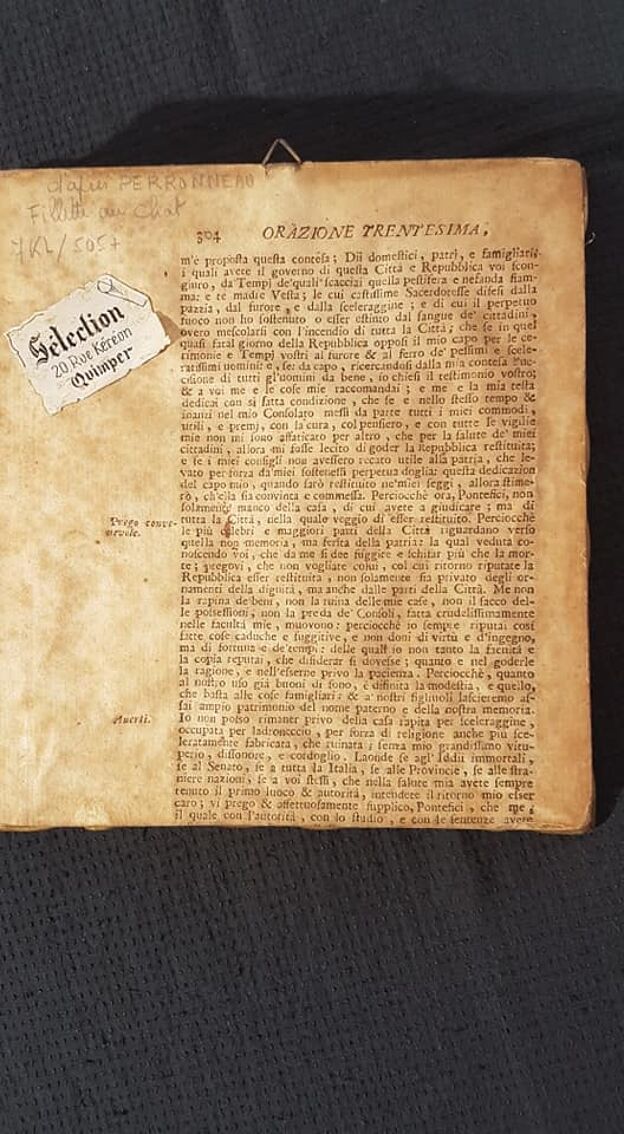 d'après PERRONNEAU
Fillette au Chat
7KL/5057
Sélection
20 Rue Kéréon
Quimper
304 ORAZIONE TRENTESIMA,
m'è proposta questa contesa; Dii domestici, patrj, e famigliari;
i quali avete il governo di questa Città e Repubblica voi scon-
giuro, da Tempj de'quali scacciai quella pestifera e nefanda fiam-
ma: e te madre Vesta; le cui castissime Sacerdotesse difesi dalla
pazzia, dal furore, e dalla sceleraggine; e di cui il perpetuo
fuoco non ho sostenuto o esser estinto dal sangue de' cittadini,
overo mescolarsi con l'incendio di tutta la Città; che se in quel
quasi fatal giorno della Repubblica opposi il mio capo per le ce-
rimonie e Tempj vostri al furore & al ferro de' pessimi e scele-
ratissimi uomini: e, se da capo, ricercandosi dalla mia contesa l'uc-
cisione di tutti gl'uomini da bene, io chiesi il testimonio vostro;
& a voi me e le cose mie raccomandai; e me e la mia testa
dedicai con sì fatta condizione, che se e nello stesso tempo &
inanzi nel mio Consolato messi da parte tutti i miei commodi,
utili, e premj, con la cura, col pensiero, e con tutte le vigilie
mie non mi sono affaticato per altro, che per la salute de' miei
cittadini, allora mi fosse lecito di goder la Repubblica restituita;
e se i miei consigli non avessero recato utile alla patria, che le-
vato per forza da'miei sostenessi perpetua doglia: questa dedicazion
del capo mio, quando sarò restituito ne'miei seggi, allora stime-
rò, ch'ella sia convinta e commessa. Perciocchè ora, Pontefici, non
solamente manco della casa, di cui avete a giudicare; ma di
Prego conve-
nevole.
tutta la Città, nella quale veggio di esser restituito. Perciocchè
le più celebri e maggiori parti della Città riguardano verso
quella non memoria, ma ferita della patria: la qual veduta co-
noscendo voi, che da me si dee fuggire e schifar più che la mor-
te; pregovi, che non vogliate colui, col cui ritorno riputate la
Repubblica esser restituita, non solamente sia privato degli or-
namenti della dignità, ma anche dalle parti della Città. Me non
la rapina de'beni, non la ruina delle mie case, non il sacco del-
le possessioni, non la preda de' Consoli, fatta crudelissimamente
nelle facultà mie, muovono: perciocchè io sempre riputai così
fatte cose caduche e fuggitive, e non doni di virtù e d'ingegno,
ma di fortuna e de'tempi: delle quali io non tanto la facilità e
la copia reputai, che disiderar si dovesse; quanto e nel goderle
la ragione, e nell'esserne privo la pacienza. Perciocchè, quanto
al nostro uso già buoni di sono, è difinita la modestia, e quello,
che basta alle cose famigliari: & a' nostri figliuoli lascieremo as-
sai ampio patrimonio del nome paterno e della nostra memoria.
Averti.
Io non posso rimaner privo della casa rapita per sceleraggine,
occupata per ladroneccio, per forza di religione anche più sce-
leratamente fabricata, che ruinata; senza mio grandissimo vitu-
perio, disonore, e cordoglio. Laonde se agl' Iddii immortali,
se al Senato, se a tutta la Italia, se alle Provincie, se alle stra-
niere nazioni, se a voi stessi, che nella salute mia avete sempre
tenuto il primo luoco & autorità, intendete il ritorno mio esser
caro; vi prego & affettuosamente supplico, Pontefici, che me,
il quale con l'autorità, con lo studio, e con le sentenze avete